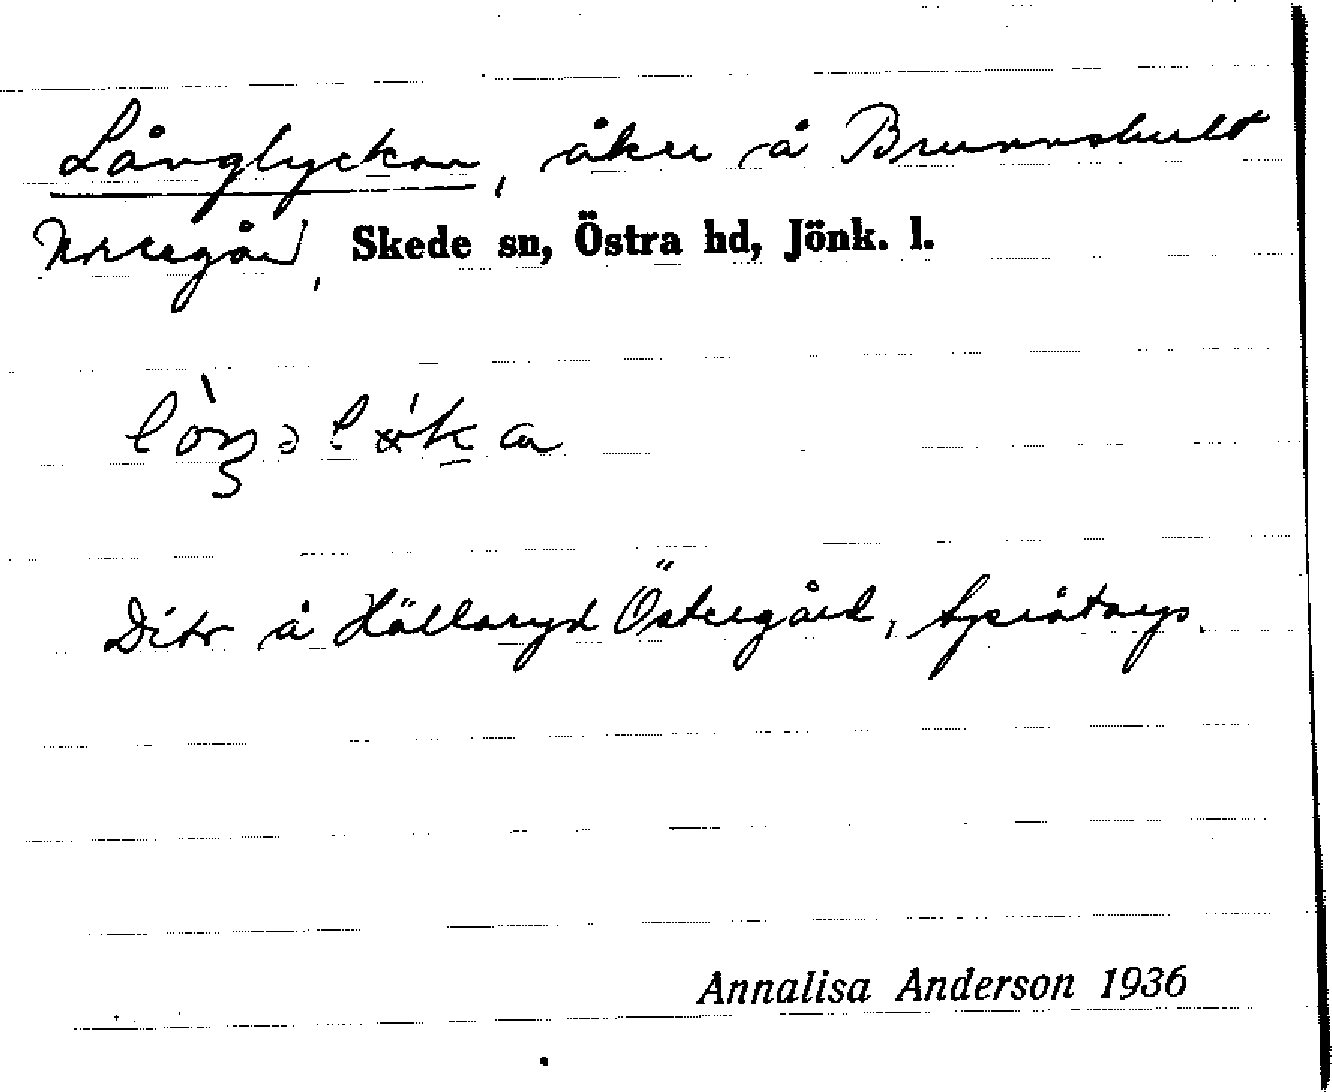 Långlyckan, åker å Brunnshult
Norregård, Skede sn, Östra hd, Jönk. l.
Dito å Hållaryd Östergård,
Annalisa Anderson 1936